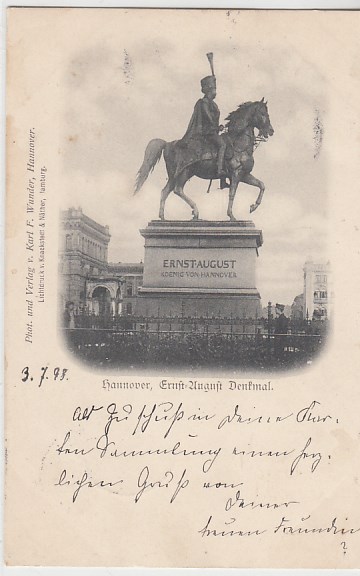 Phot. und Verlag v. Karl F. Wunder, Hannover.
Lichtdruck v. Knackstedt & Näther, Hamburg.
ERNST AUGUST
KOENIG VON HANNOVER
Hannover, Ernst-August Denkmal.
3. 7. 98.
Als Zuschuß in Deine Kar-
ten Sammlung einen herz-
lichen Gruß von
Deiner
treuen Freundin
?